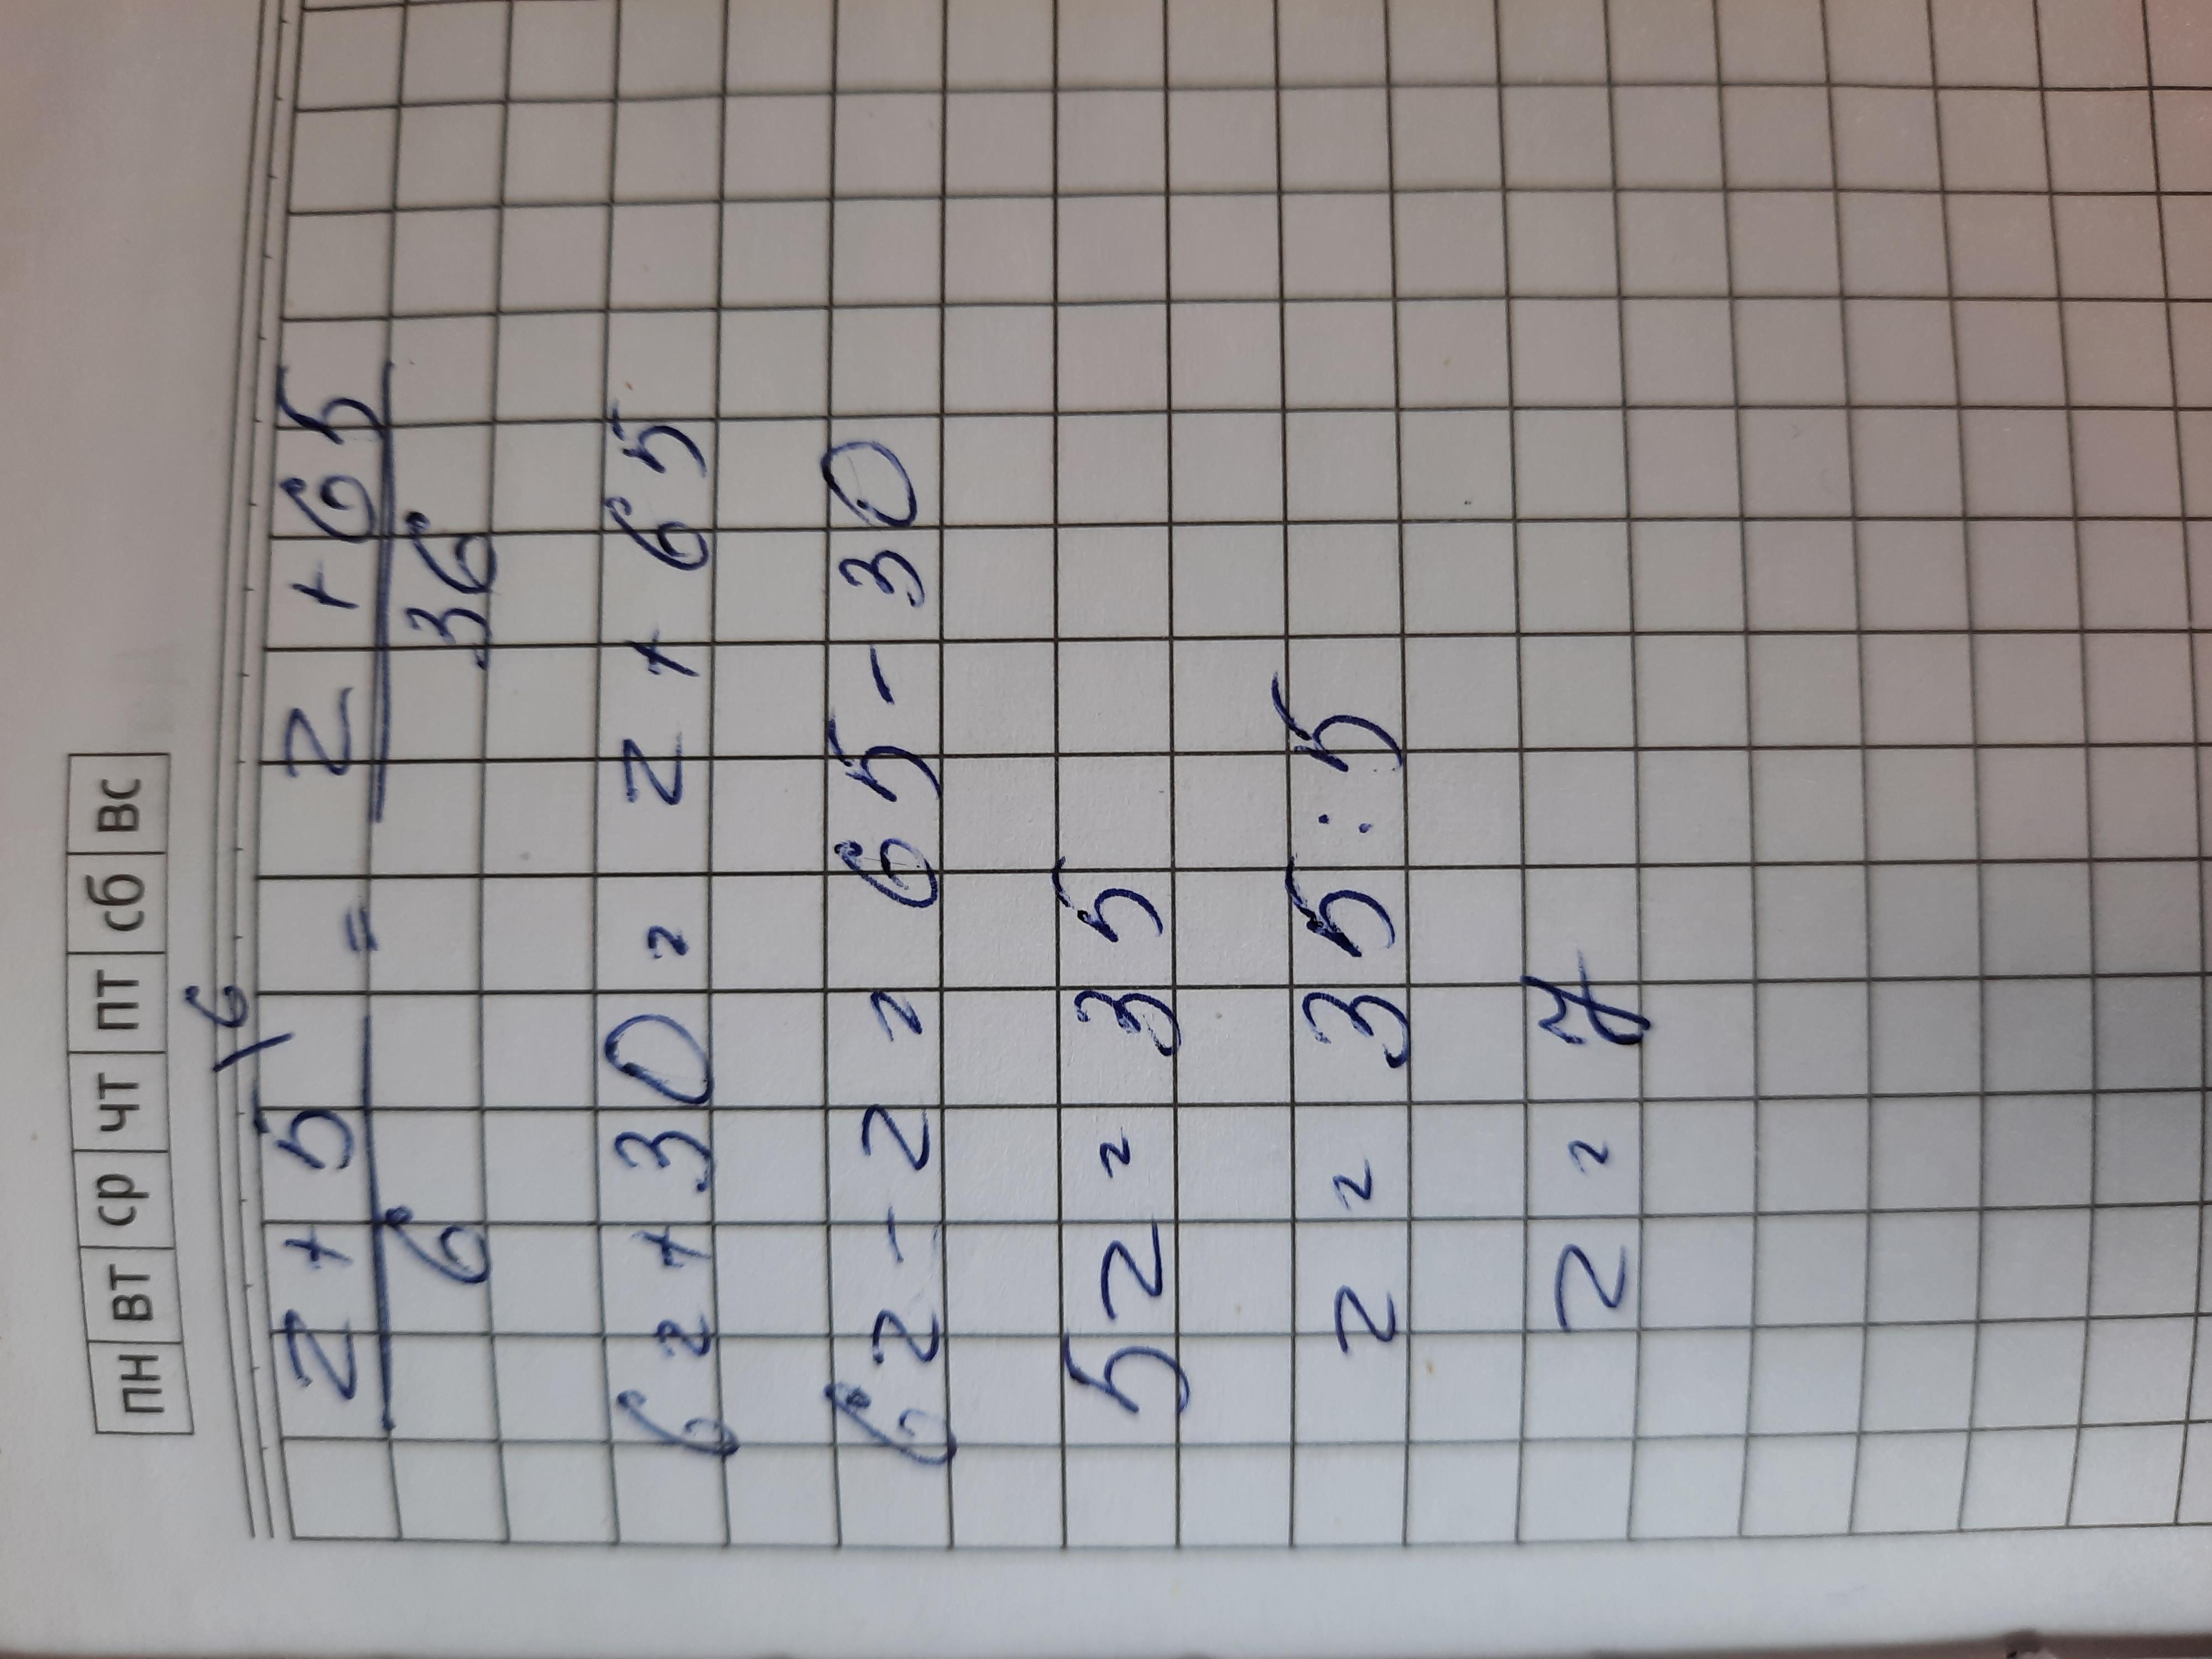 ПН ВТ СР ЧТ ПТ СБ ВС
\6
z + 5 = z + 65
6 36
6z + 30 = z + 65
6z - z = 65 - 30
5z = 35
z = 35 : 5
z = 7